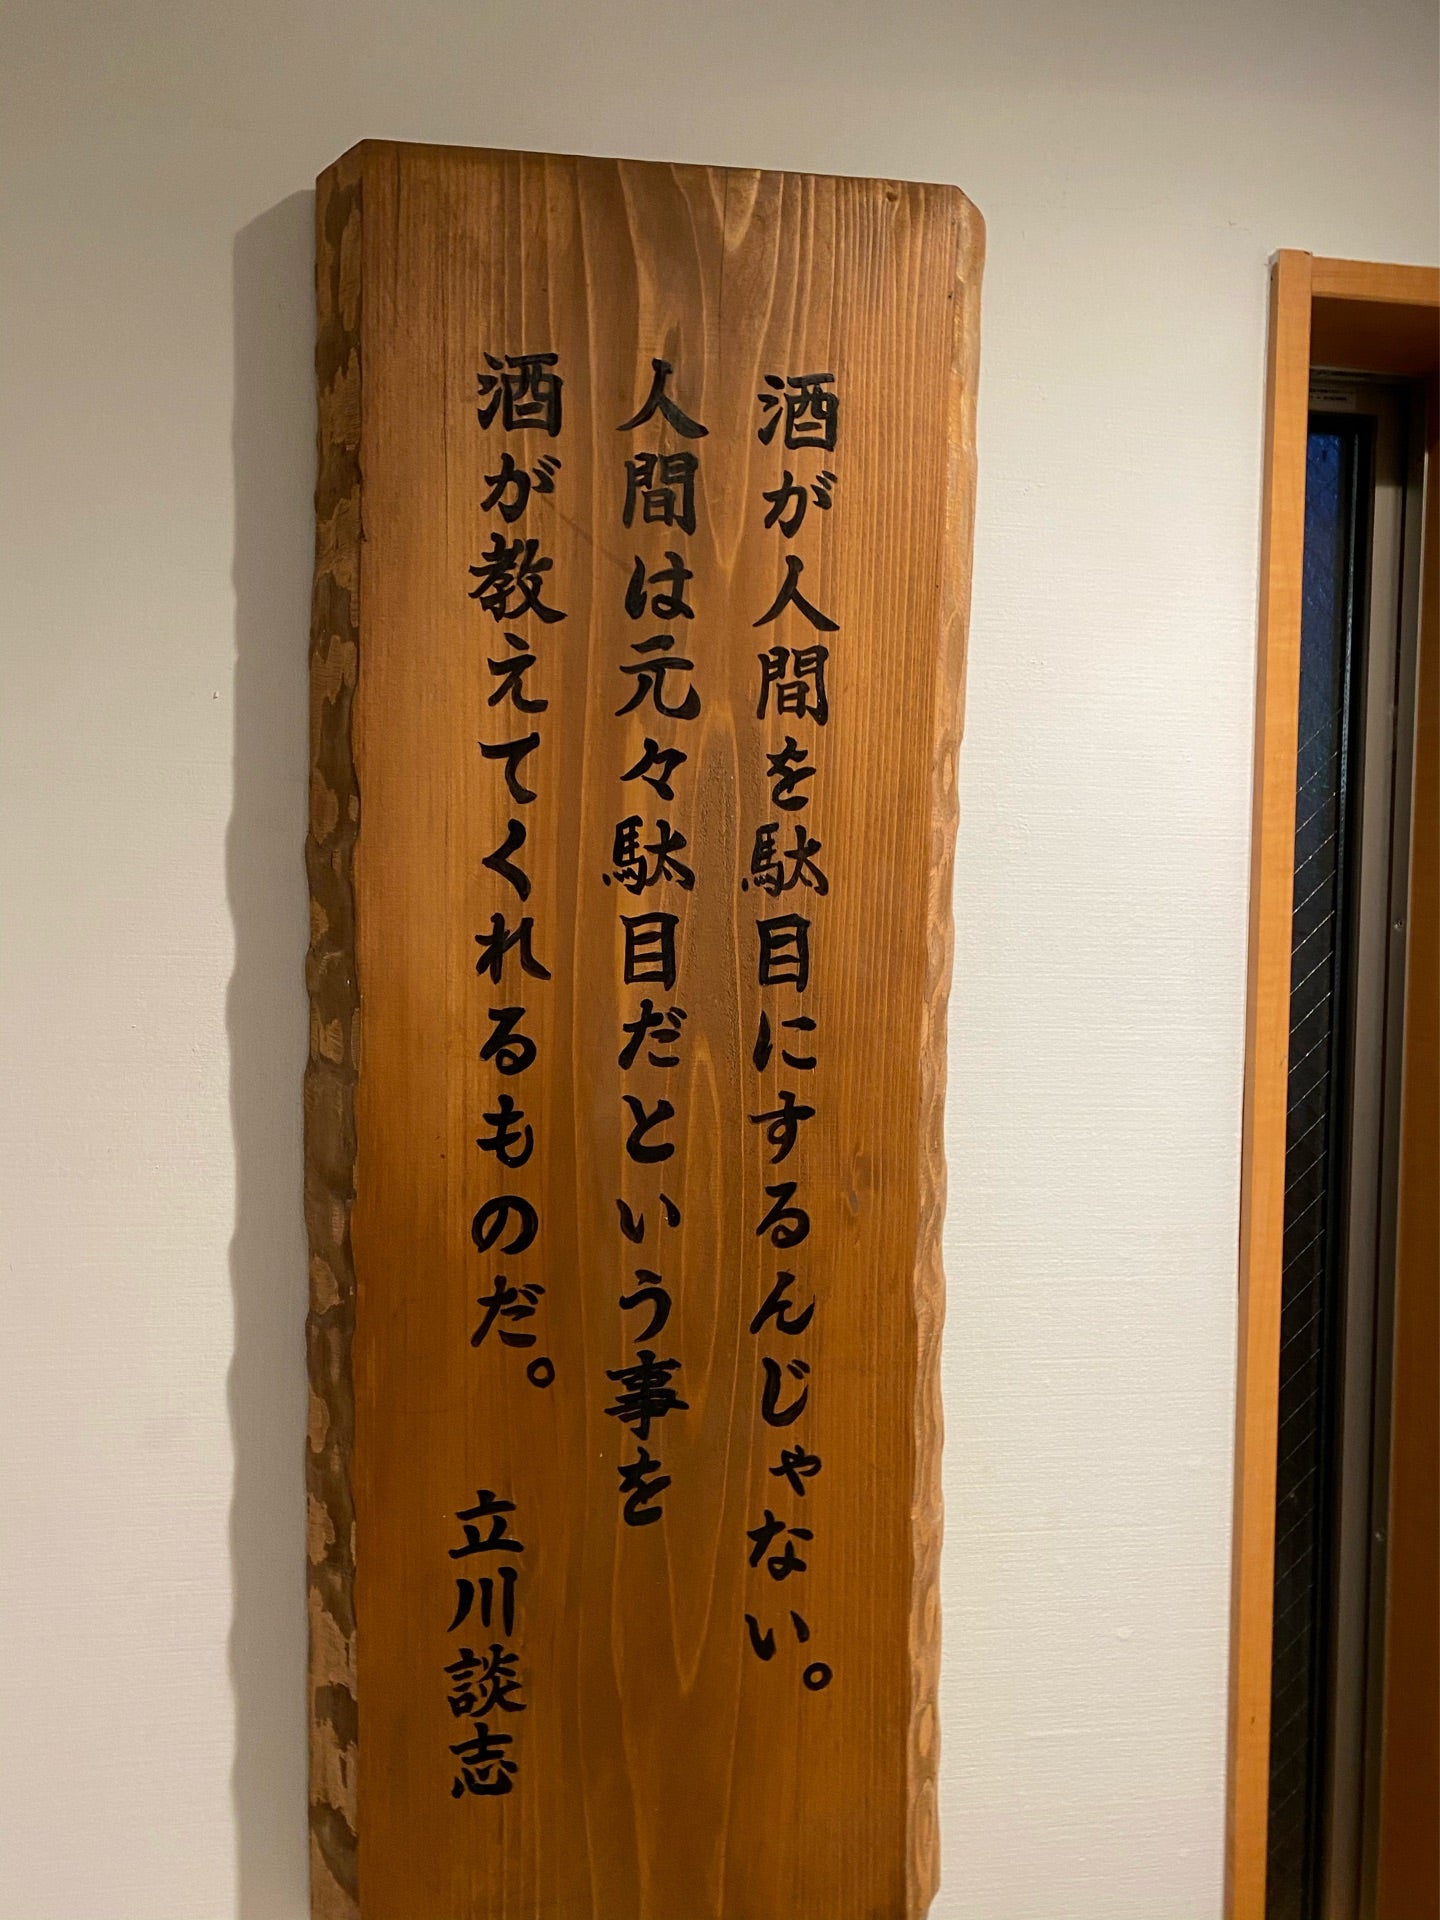 酒が人間を駄目にするんじゃない。
人間は元々駄目だという事を
酒が教えてくれるものだ。
立川談志